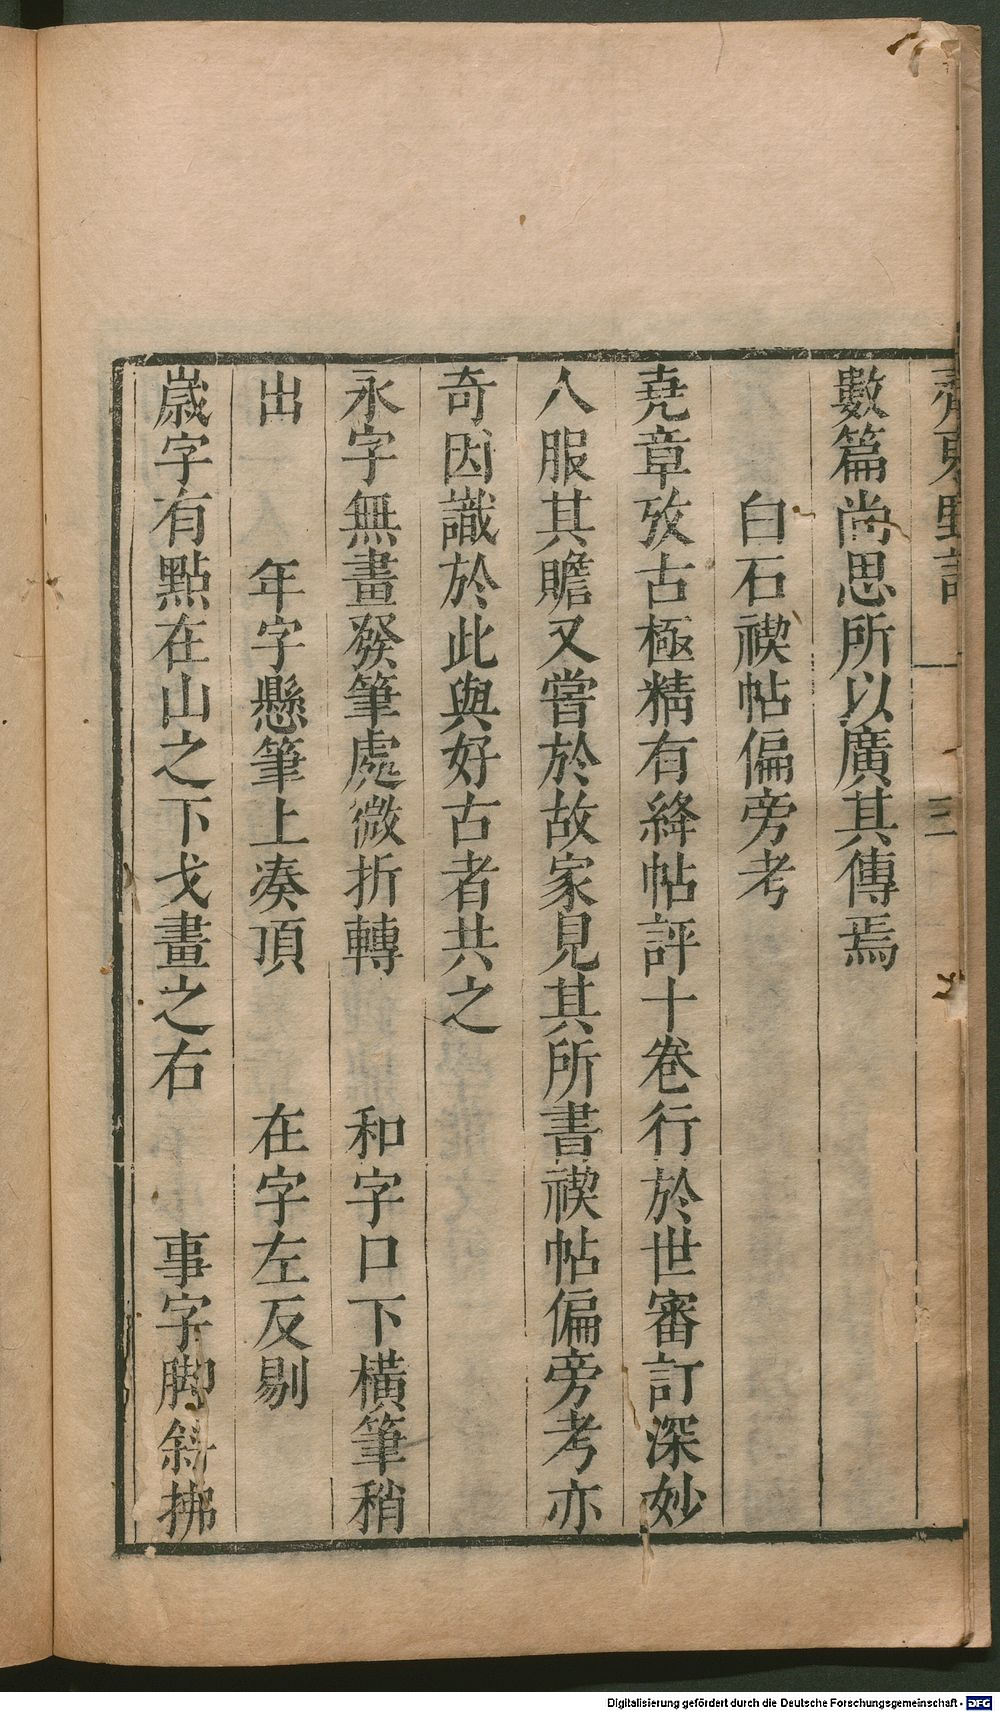 齊東野語 三
數篇尚思所以廣其傳焉
白石禊帖偏旁考
堯章攷古極精有絳帖評十卷行於世審訂深妙
人服其贍又嘗於故家見其所書禊帖偏旁考亦
奇因識於此與好古者共之
永字無畫發筆處微折轉 和字口下橫筆稍
出 年字懸筆上凑頂 在字左反剔
歲字有點在山之下戈畫之右 事字脚斜拂
Digitalisierung gefördert durch die Deutsche Forschungsgemeinschaft - DFG